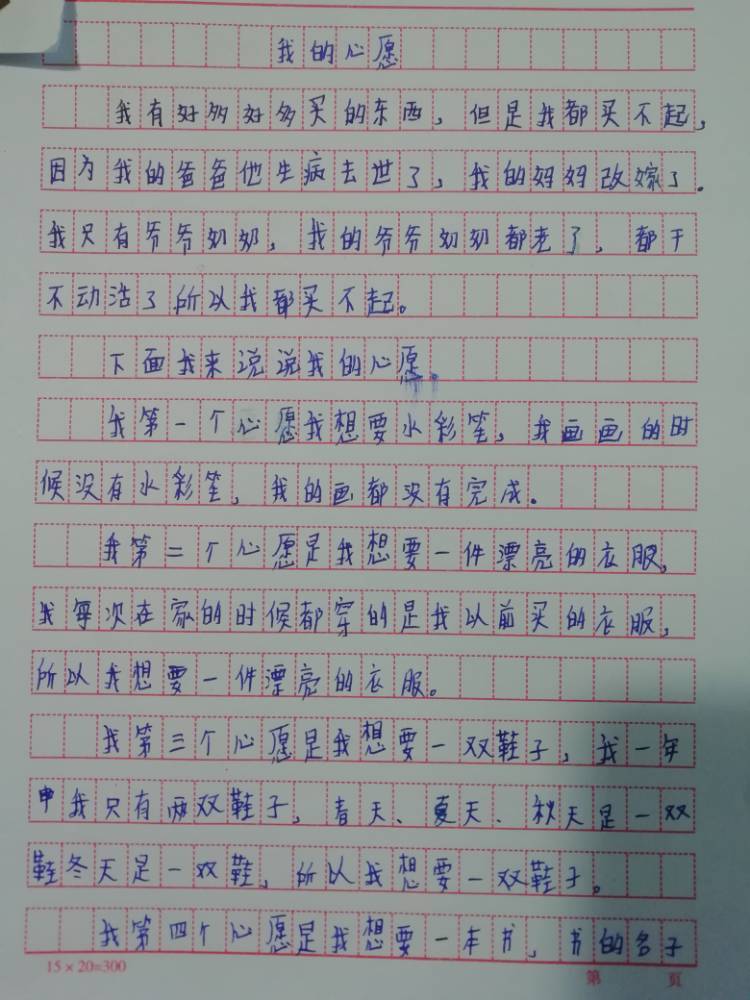 我的心愿
我有好多好多买的东西，但是我都买不起，
因为我的爸爸他生病去世了，我的妈妈改嫁了。
我只有爷爷奶奶，我的爷爷奶奶都老了，都干
不动活了所以我都买不起。
下面我来说说我的心愿。
我第一个心愿我想要水彩笔，我画画的时
候没有水彩笔，我的画都没有完成。
我第二个心愿是我想要一件漂亮的衣服，
我每次在家的时候都穿的是我以前买的衣服，
所以我想要一件漂亮的衣服。
我第三个心愿是我想要一双鞋子，我一年
中我只有两双鞋子，春天、夏天、秋天是一双
鞋冬天是一双鞋，所以我想要一双鞋子。
我第四个心愿是我想要一本书，书的名子
15×20=300 第 页